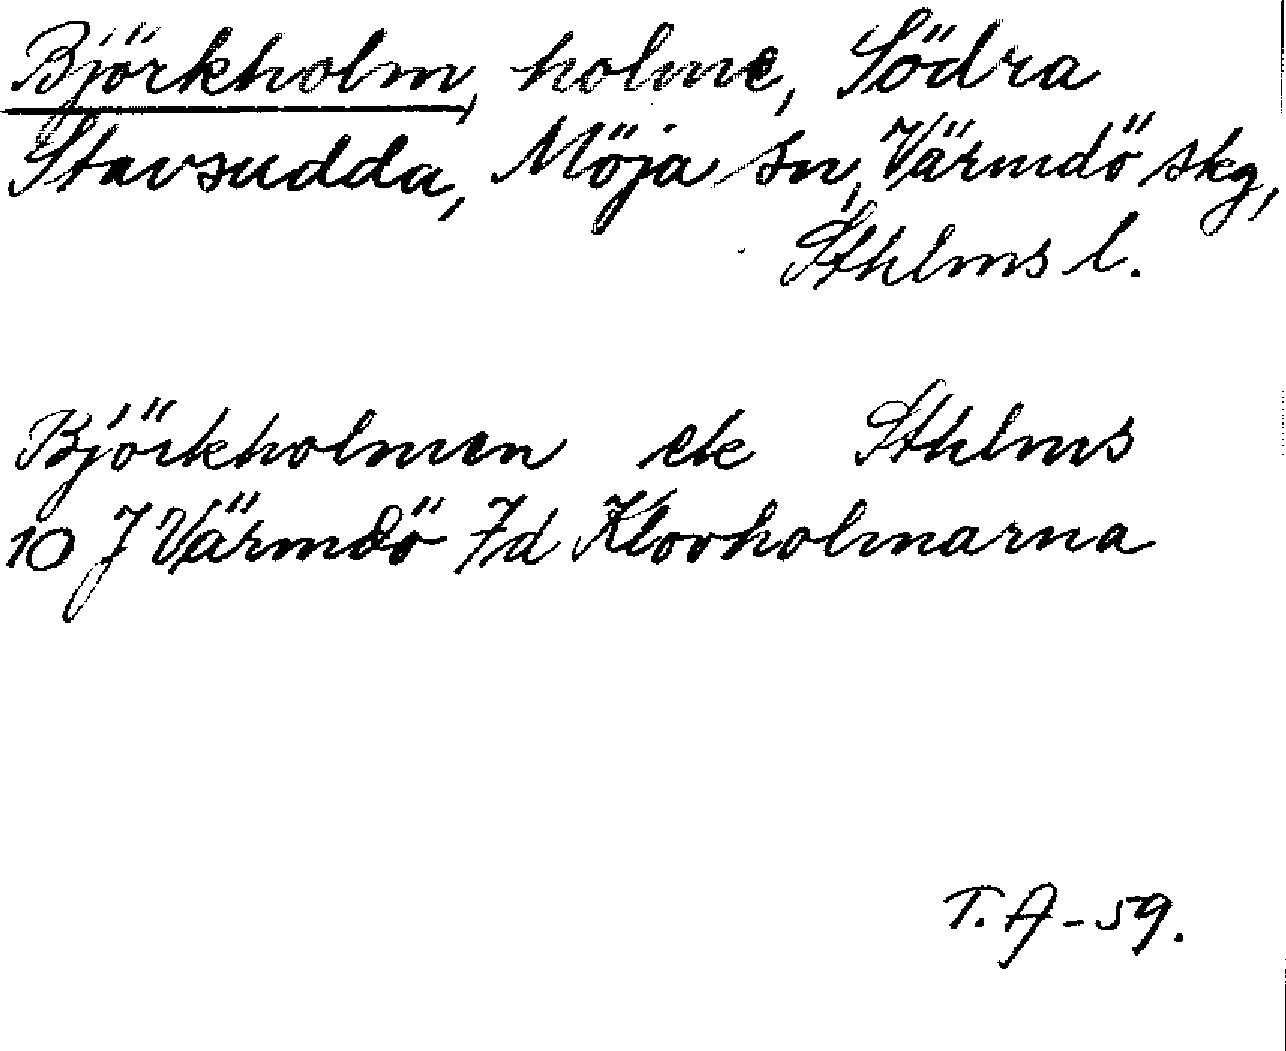 Björkholm, holme, Södra
Stavsudda, Möja sn, Värmdö skg,
Sthlms l.
Björkholmen ek Sthlms
10 J Värmdö 7d Klovholmarna
T.A-59.